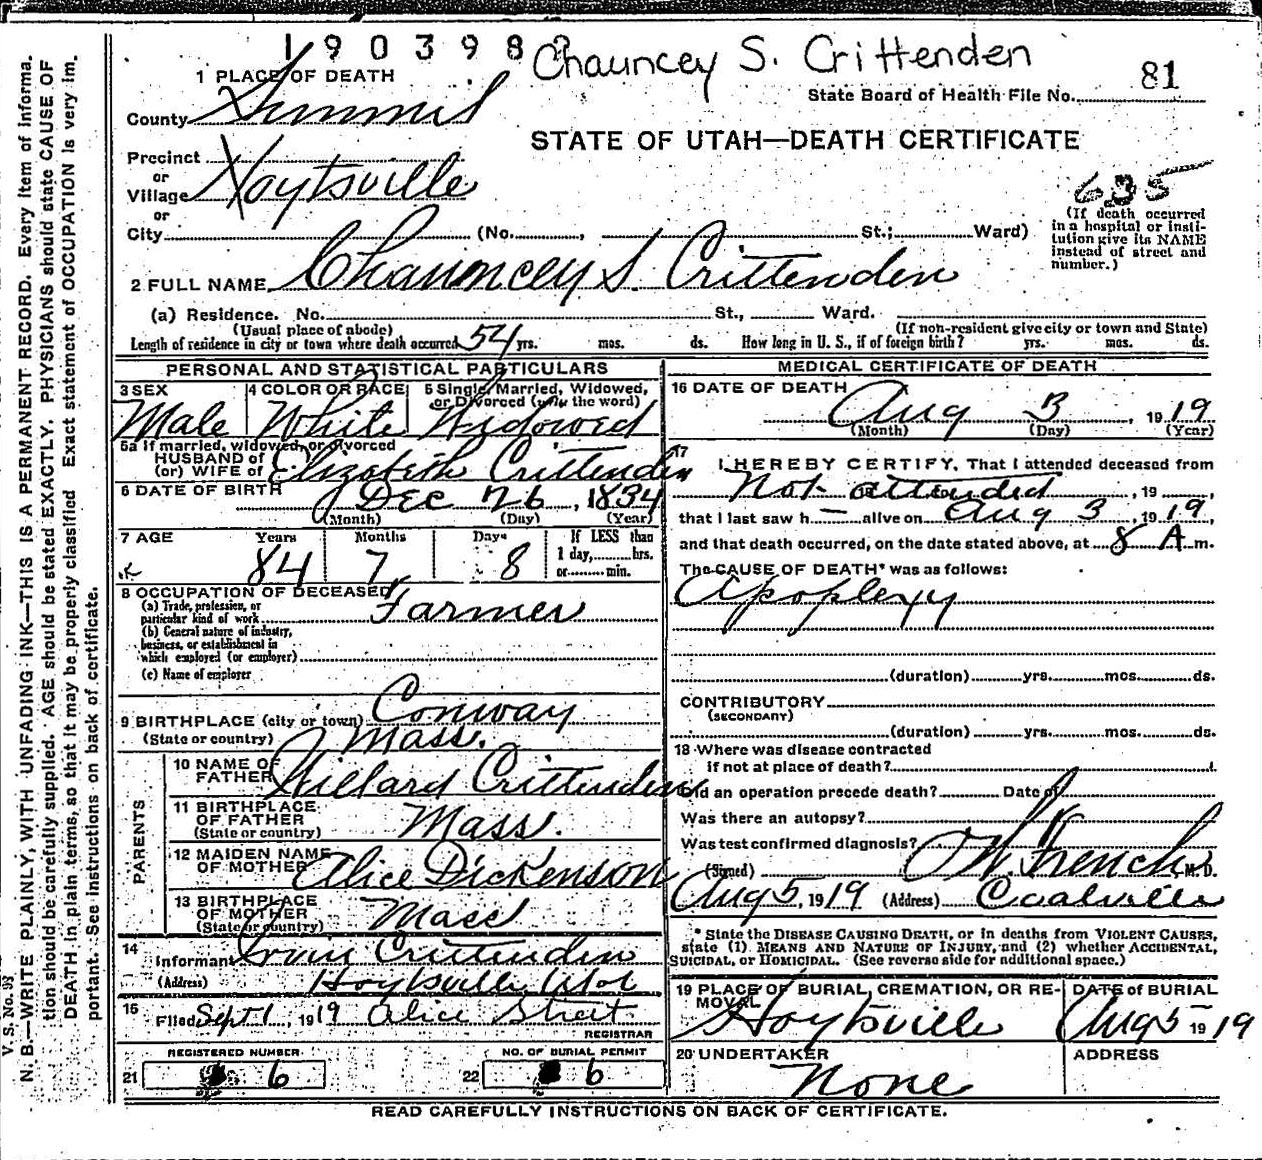 190398
Chauncey S. Crittenden
81
1 PLACE OF DEATH
State Board of Health File No.
County Summit
STATE OF UTAH—DEATH CERTIFICATE
Precinct
or
Village Hoytsville
635
or
City (No. , St.; Ward)
(If death occurred
in a hospital or insti-
tution give its NAME
instead of street and
number.)
2 FULL NAME Chauncey S. Crittenden
(a) Residence. No. St., Ward.
(Usual place of abode)
(If non-resident give city or town and State)
Length of residence in city or town where death occurred 54 yrs. mos. ds. How long in U. S., if of foreign birth? yrs. mos. ds.
PERSONAL AND STATISTICAL PARTICULARS
3 SEX
Male
4 COLOR OR RACE
White
5 Single, Married, Widowed,
or Divorced (write the word)
Widowed
5a If married, widowed, or divorced
HUSBAND of
(or) WIFE of Elizabeth Crittenden
6 DATE OF BIRTH
Dec 26, 1834
(Month) (Day) (Year)
7 AGE Years Months Days
If LESS than
1 day, hrs.
or min.
84 7 8
8 OCCUPATION OF DECEASED
(a) Trade, profession, or
particular kind of work Farmer
(b) General nature of industry,
business, or establishment in
which employed (or employer)
(c) Name of employer
9 BIRTHPLACE (city or town) Conway
(State or country) Mass.
PARENTS
10 NAME OF
FATHER Willard Crittenden
11 BIRTHPLACE
OF FATHER
(State or country) Mass.
12 MAIDEN NAME
OF MOTHER Alice Dickenson
13 BIRTHPLACE
OF MOTHER
(State or country) Mass
14
Informant Crittenden
(Address) Hoytsville
15
Filed Sept 1, 1919 Alice Street
REGISTRAR
REGISTERED NUMBER
21 6
NO. OF BURIAL PERMIT
22 6
MEDICAL CERTIFICATE OF DEATH
16 DATE OF DEATH
Aug 3 1919
(Month) (Day) (Year)
17
I HEREBY CERTIFY, That I attended deceased from
Not attended , 19 ,
that I last saw h — alive on Aug 3, 1919,
and that death occurred, on the date stated above, at 8 A m.
The CAUSE OF DEATH* was as follows:
Apoplexy
(duration) yrs. mos. ds.
CONTRIBUTORY
(SECONDARY)
(duration) yrs. mos. ds.
18 Where was disease contracted
if not at place of death?
Did an operation precede death? Date of
Was there an autopsy?
Was test confirmed diagnosis?
(Signed) French M. D.
Aug 5, 1919 (Address) Coalville
* State the DISEASE CAUSING DEATH, or in deaths from VIOLENT CAUSES,
state (1) MEANS AND NATURE OF INJURY, and (2) whether ACCIDENTAL,
SUICIDAL, or HOMICIDAL. (See reverse side for additional space.)
19 PLACE OF BURIAL, CREMATION, OR RE-
MOVAL
Hoytsville
DATE of BURIAL
Aug 5 1919
20 UNDERTAKER
None
ADDRESS
READ CAREFULLY INSTRUCTIONS ON BACK OF CERTIFICATE.
V. S. No. 93
N. B.—WRITE PLAINLY, WITH UNFADING INK—THIS IS A PERMANENT RECORD. Every item of informa-
tion should be carefully supplied. AGE should be stated EXACTLY. PHYSICIANS should state CAUSE OF
DEATH in plain terms, so that it may be properly classified. Exact statement of OCCUPATION is very im-
portant. See instructions on back of certificate.